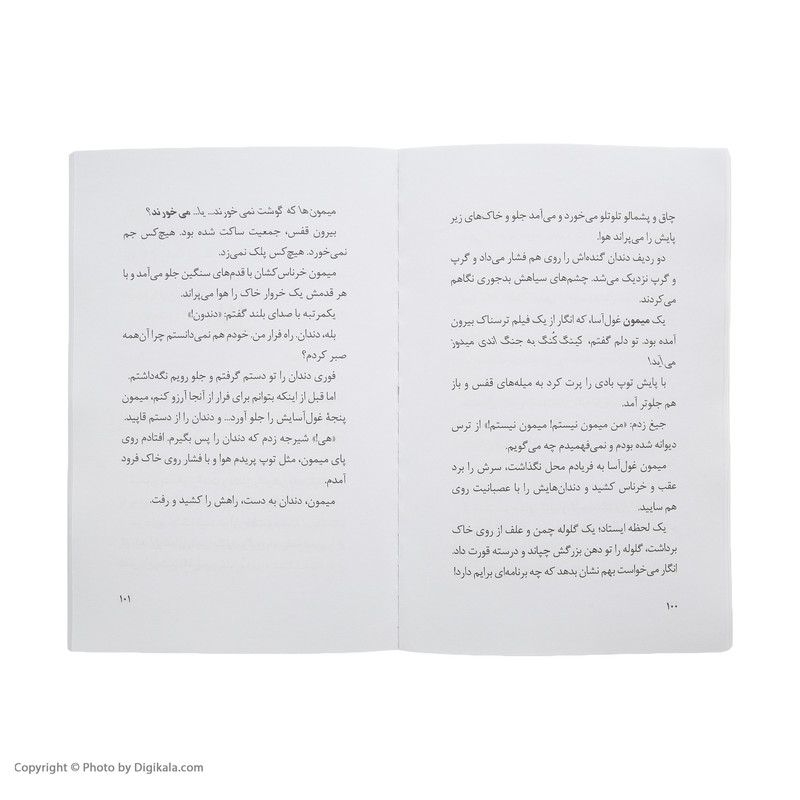 چاق و پشمالو تلوتلو می‌خورد و می‌آمد جلو و خاک‌های زیر
پایش را می‌پراند هوا.
دو ردیف دندان گنده‌اش را روی هم فشار می‌داد و گرپ
و گرپ نزدیک می‌شد. چشم‌های سیاهش بدجوری نگاهم
می‌کردند.
یک میمون غول‌آسا، که انگار از یک فیلم ترسناک بیرون
آمده بود. تو دلم گفتم، کینگ کُنگ به جنگ اندی میدون
می‌آید!
با پایش توپ بادی را پرت کرد به میله‌های قفس و باز
هم جلوتر آمد.
جیغ زدم: «من میمون نیستم! میمون نیستم!» از ترس
دیوانه شده بودم و نمی‌فهمیدم چه می‌گویم.
میمون غول‌آسا به فریادم محل نگذاشت، سرش را برد
عقب و خرناس کشید و دندان‌هایش را با عصبانیت روی
هم سایید.
یک لحظه ایستاد؛ یک گلوله چمن و علف از روی خاک
برداشت، گلوله را تو دهن بزرگش چپاند و درسته قورت داد.
انگار می‌خواست بهم نشان بدهد که چه برنامه‌ای برایم دارد!
۱۰۰
میمون‌ها که گوشت نمی‌خورند... یا... می‌خورند؟
بیرون قفس، جمعیت ساکت شده بود. هیچ‌کس جم
نمی‌خورد. هیچ‌کس پلک نمی‌زد.
میمون خرناس‌کشان با قدم‌های سنگین جلو می‌آمد و با
هر قدمش یک خروار خاک را هوا می‌پراند.
یکمرتبه با صدای بلند گفتم: «دندون!»
بله، دندان. راه فرار من. خودم هم نمی‌دانستم چرا آن‌همه
صبر کردم؟
فوری دندان را تو دستم گرفتم و جلو رویم نگه‌داشتم.
اما قبل از اینکه بتوانم برای فرار از آنجا آرزو کنم، میمون
پنجهٔ غول‌آسایش را جلو آورد... و دندان را از دستم قاپید.
«هی!» شیرجه زدم که دندان را پس بگیرم. افتادم روی
پای میمون، مثل توپ پریدم هوا و با فشار روی خاک فرود
آمدم.
میمون، دندان به دست، راهش را کشید و رفت.
۱۰۱
Copyright © Photo by Digikala.com